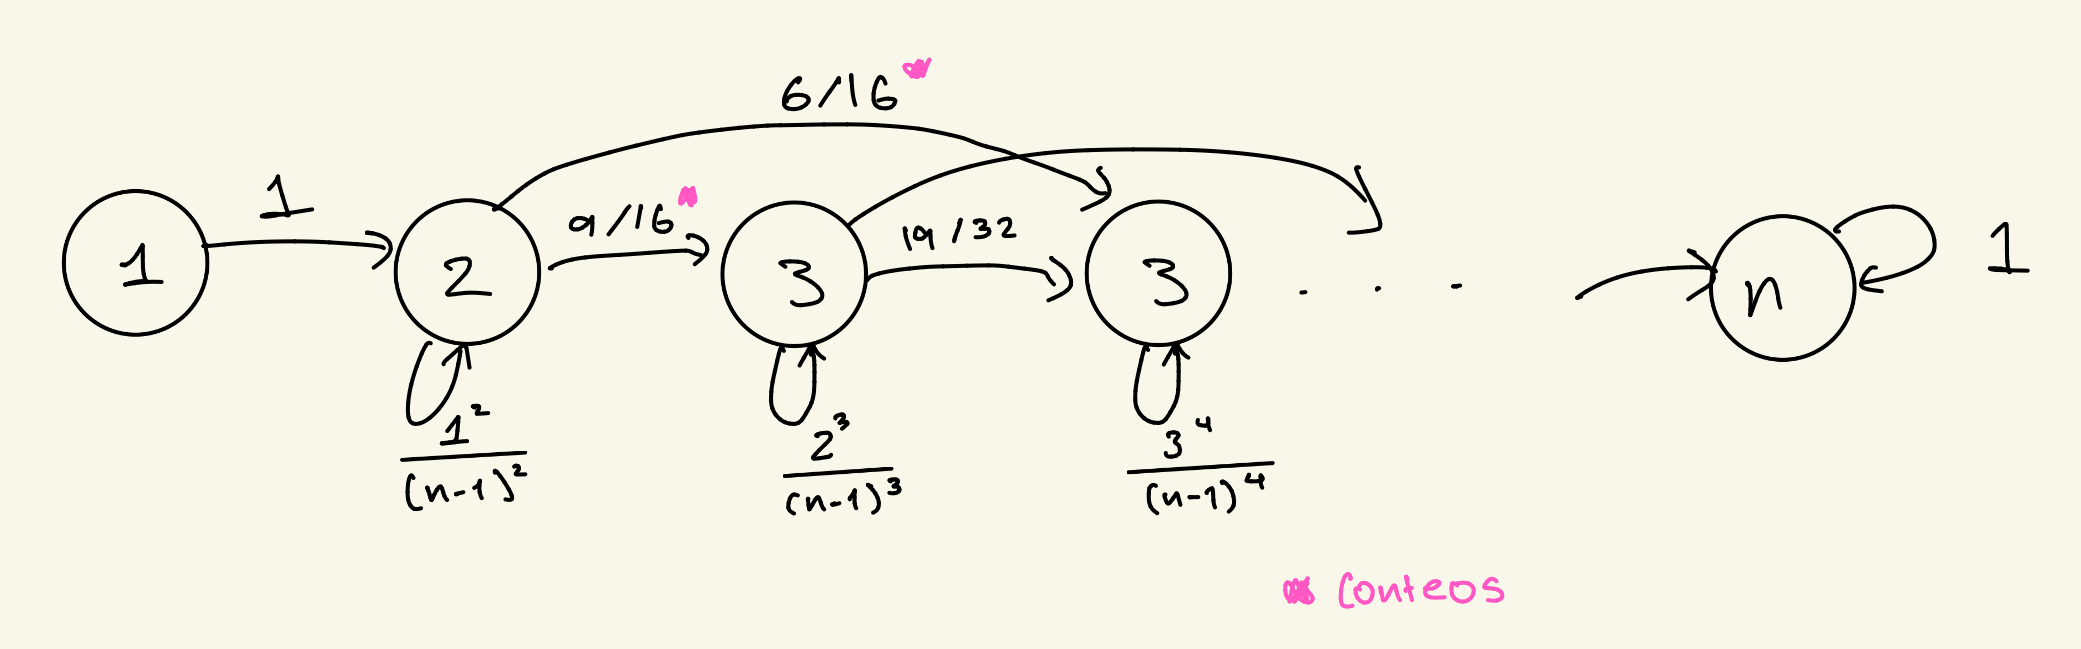 6/16
1
9/16
19/32
1
2
3
3
n
1
1²/(n-1)²
2³/(n-1)³
3⁴/(n-1)⁴
Conteos